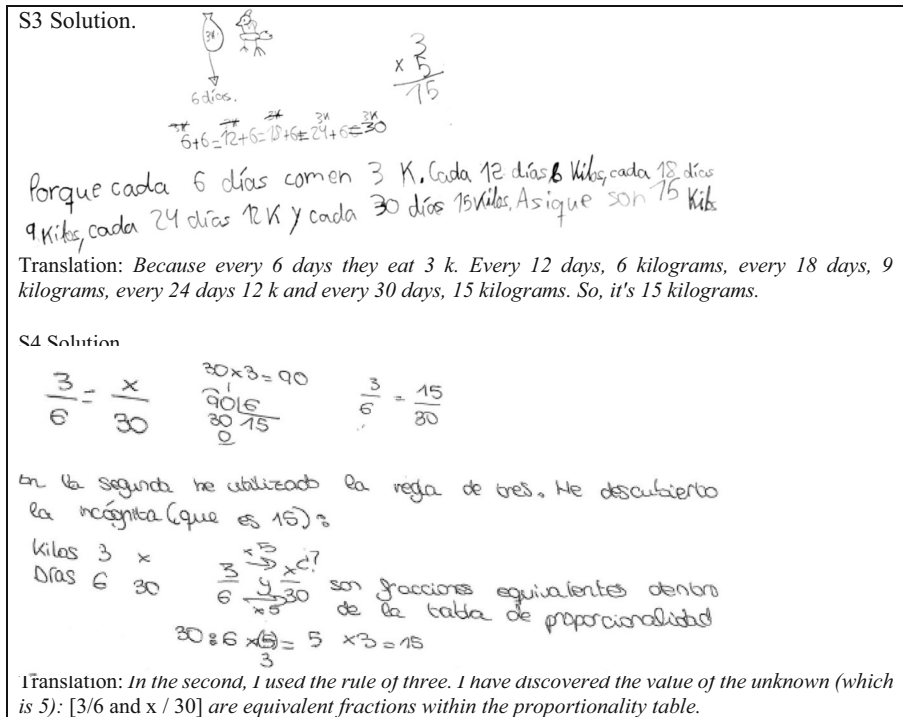 S3 Solution.
3K.
6 días.
3
x 5
15
3K 3K 3K 3K 3K
6+6=12+6=18+6=24+6=30
Porque cada 6 días comen 3 K. Cada 12 días 6 Kilos, cada 18 días
9 Kilos, cada 24 días 12 K y cada 30 días 15 Kilos, Asique son 15 Kilos
Translation: Because every 6 days they eat 3 k. Every 12 days, 6 kilograms, every 18 days, 9
kilograms, every 24 days 12 k and every 30 days, 15 kilograms. So, it's 15 kilograms.
S4 Solution
3/6 = x/30
30x3=90
90 6
30 15
0
3/6 = 15/30
En la segunda he utilizado la regla de tres. He descubierto
la incógnita (que es 15):
Kilos 3 x
Días 6 30
x5
3/6 x/30 ¿?
x5
son fracciones equivalentes dentro
de la tabla de proporcionalidad
30:6 x(5)= 5 x3=15
3
Translation: In the second, I used the rule of three. I have discovered the value of the unknown (which
is 5): [3/6 and x / 30] are equivalent fractions within the proportionality table.